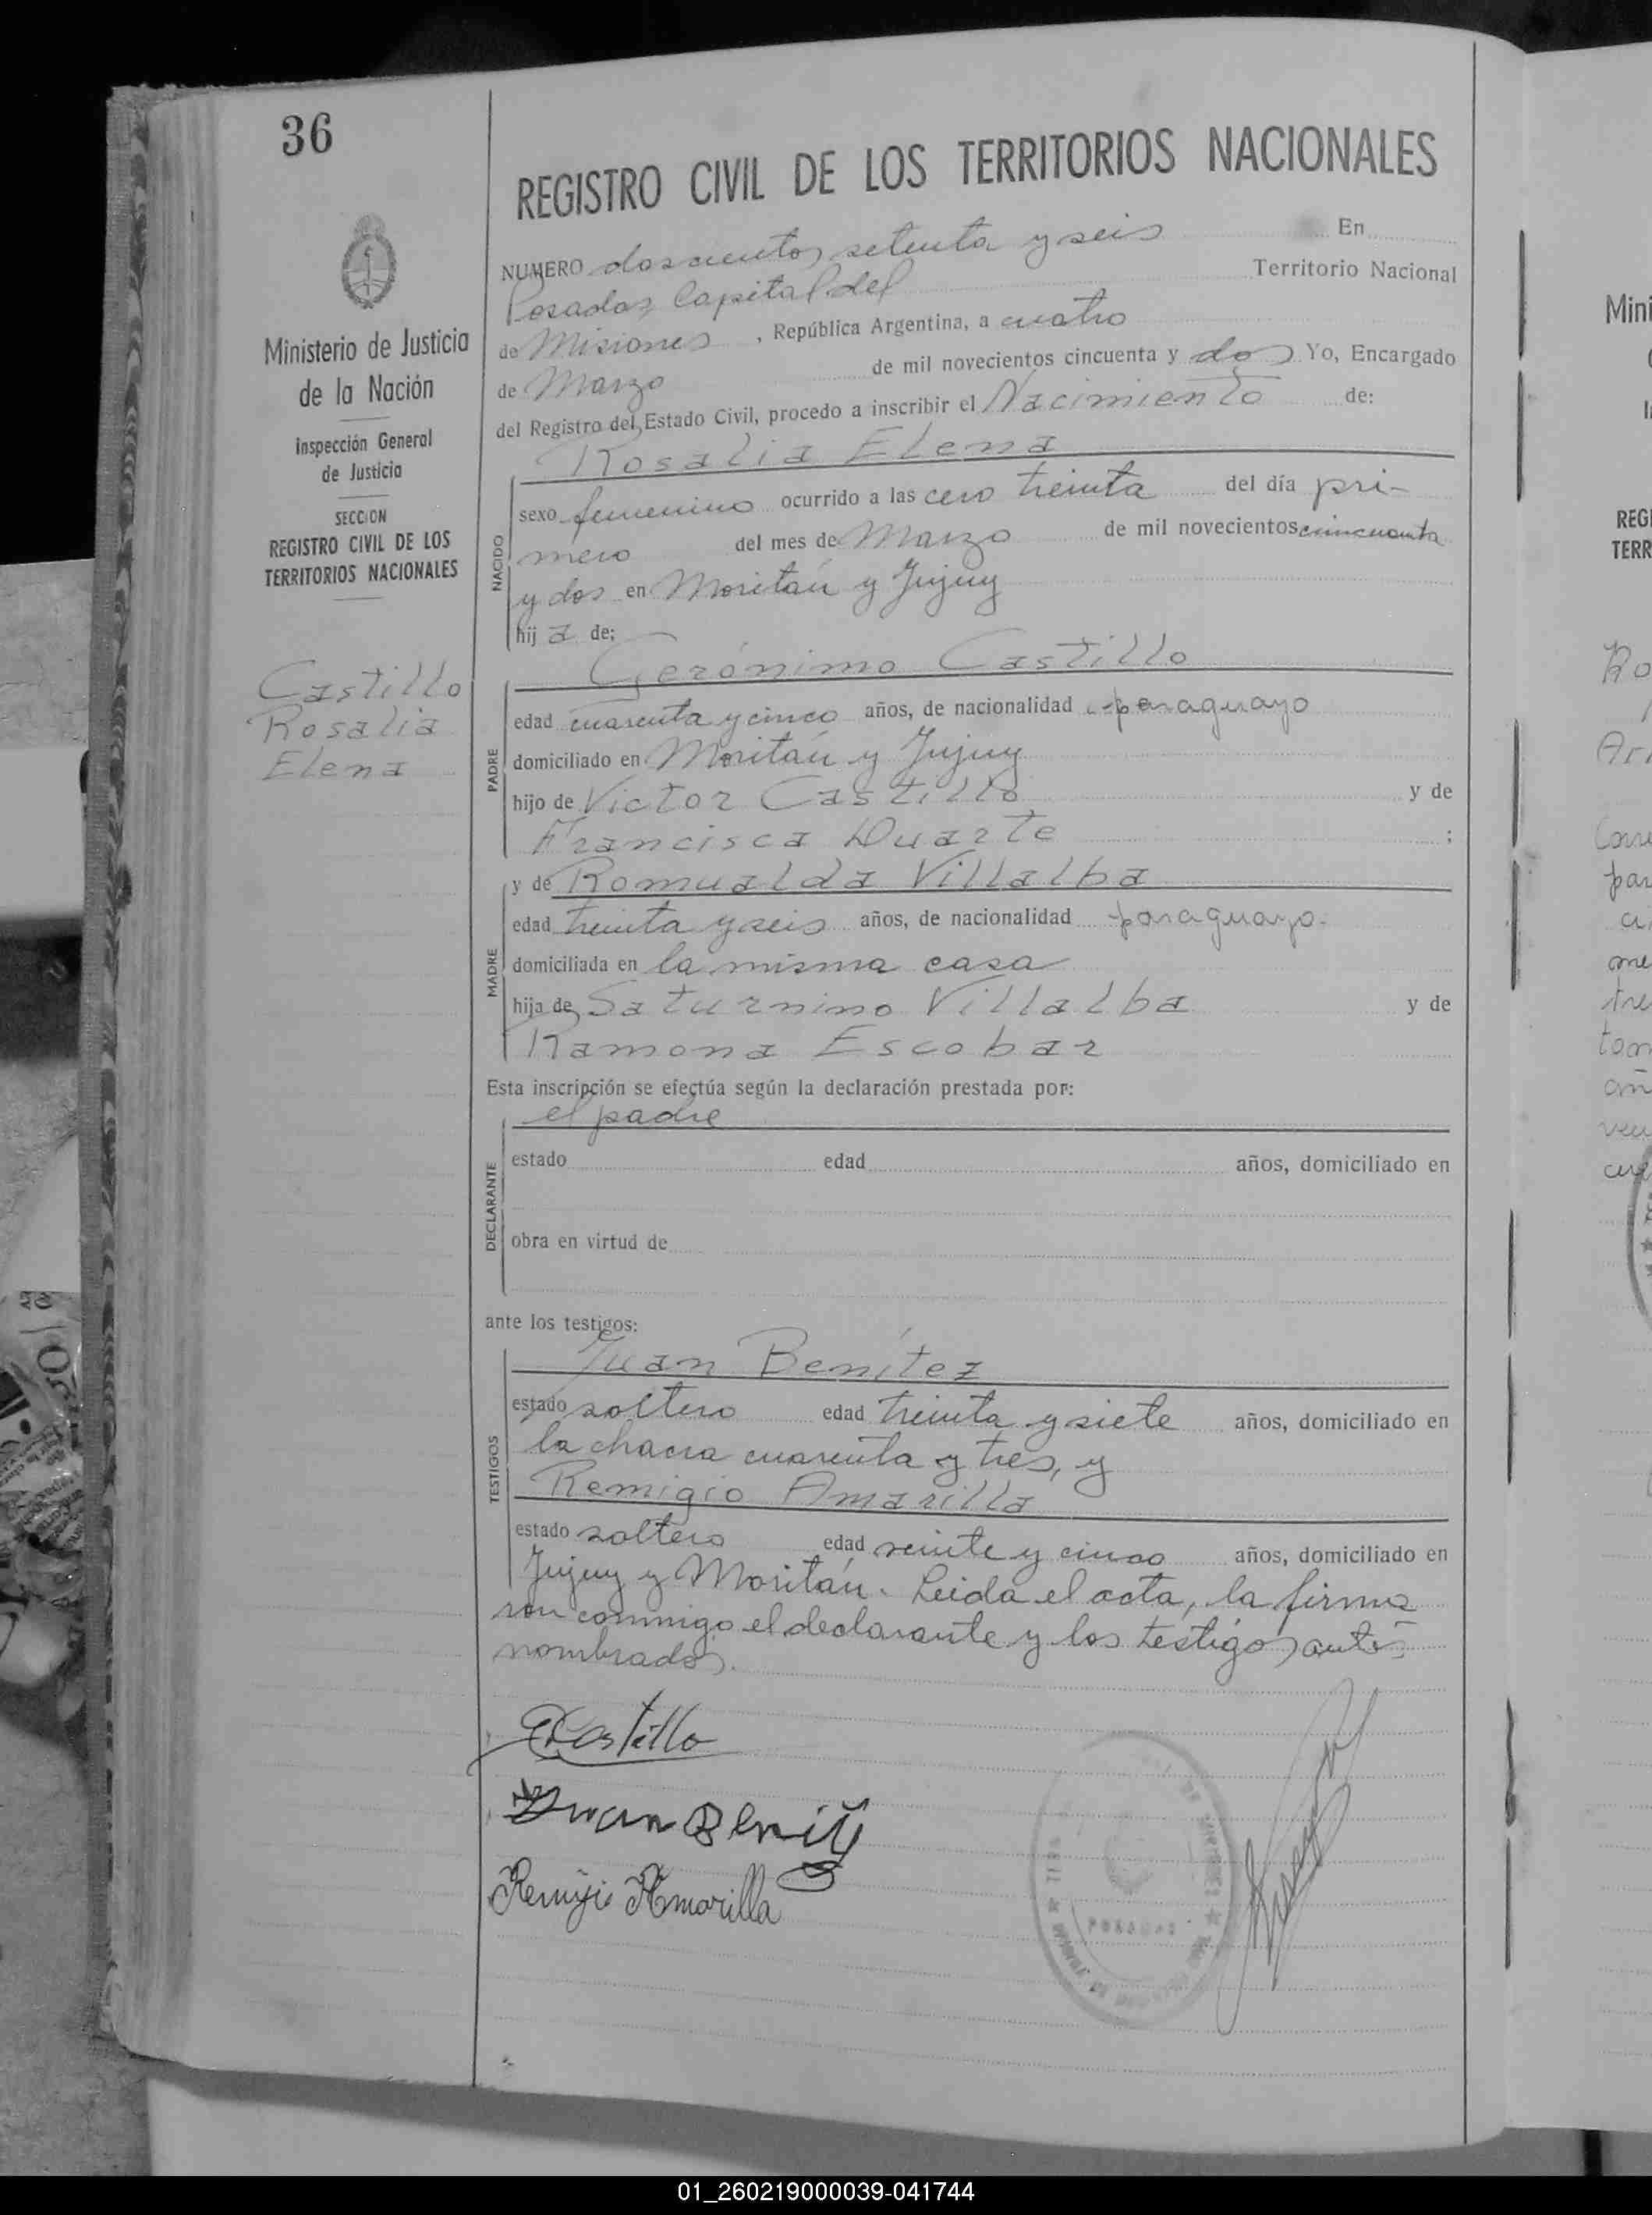 36
REGISTRO CIVIL DE LOS TERRITORIOS NACIONALES
NUMERO doscientos setenta y seis En
Posadas Capital del Territorio Nacional
de Misiones, República Argentina, a cuatro
de Marzo de mil novecientos cincuenta y dos Yo, Encargado
del Registro del Estado Civil, procedo a inscribir el Nacimiento de:
Rosalia Elena
NACIDO
sexo femenino ocurrido a las cero treinta del día pri-
mero del mes de Marzo de mil novecientos cincuenta
y dos en Moritán y Jujuy
hij a de:
Gerónimo Castillo
PADRE
edad cuarenta y cinco años, de nacionalidad paraguayo
domiciliado en Moritán y Jujuy
hijo de Victor Castillo y de
Francisca Duarte ;
y de Romualda Villalba
MADRE
edad treinta y seis años, de nacionalidad paraguaya
domiciliada en la misma casa
hija de Saturnino Villalba y de
Ramona Escobar
Esta inscripción se efectúa según la declaración prestada por:
el padre
DECLARANTE
estado edad años, domiciliado en
obra en virtud de
ante los testigos:
Juan Benítez
TESTIGOS
estado soltero edad treinta y siete años, domiciliado en
la chacra cuarenta y tres, y
Remigio Amarilla
estado soltero edad veinte y cinco años, domiciliado en
Jujuy y Moritán. Leida el acta, la firma
ron conmigo el declarante y los testigos antes
nombrados.
GCastillo
Juan Benitez
Remijio Amarilla
POSADAS
Ministerio de Justicia
de la Nación
Inspección General
de Justicia
SECCION
REGISTRO CIVIL DE LOS
TERRITORIOS NACIONALES
Castillo
Rosalia
Elena
01_260219000039-041744